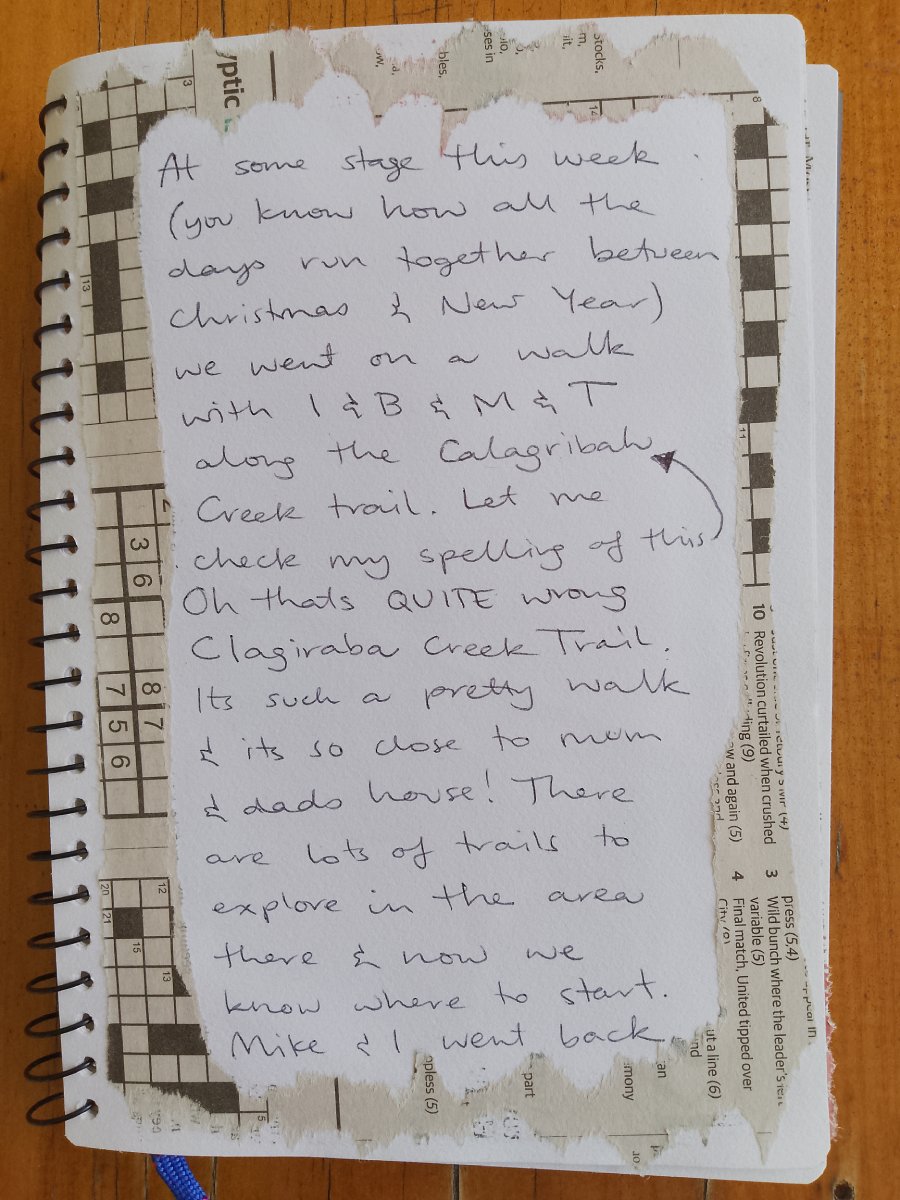 At some stage this week
(you know how all the
days run together between
Christmas & New Year)
we went on a walk
with I & B & M & T
along the Calagribah
Creek trail. Let me
check my spelling of this
Oh thats QUITE wrong
Clagiraba Creek Trail.
Its such a pretty walk
& its so close to mum
& dads house! There
are lots of trails to
explore in the area
there & now we
know where to start.
Mike & I went back
yptic
3
13
3
6
8
8
7
7
5
6
20
21
12
15
13
5
bles,
ses in
it,
stocks,
14
8
11
10 Revolution curtailed when crushed
ding (9)
ow and again (5)
press (5,4)
3 Wild bunch where the leader's
variable (5)
4 Final match, United tipped over
City
ut a line (6)
nd
an
mony
part
opless (5)